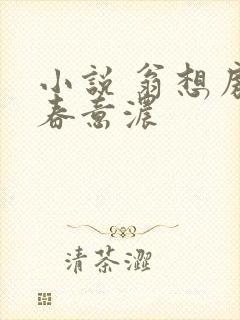 小說 翁想房
春意濃
清茶澀